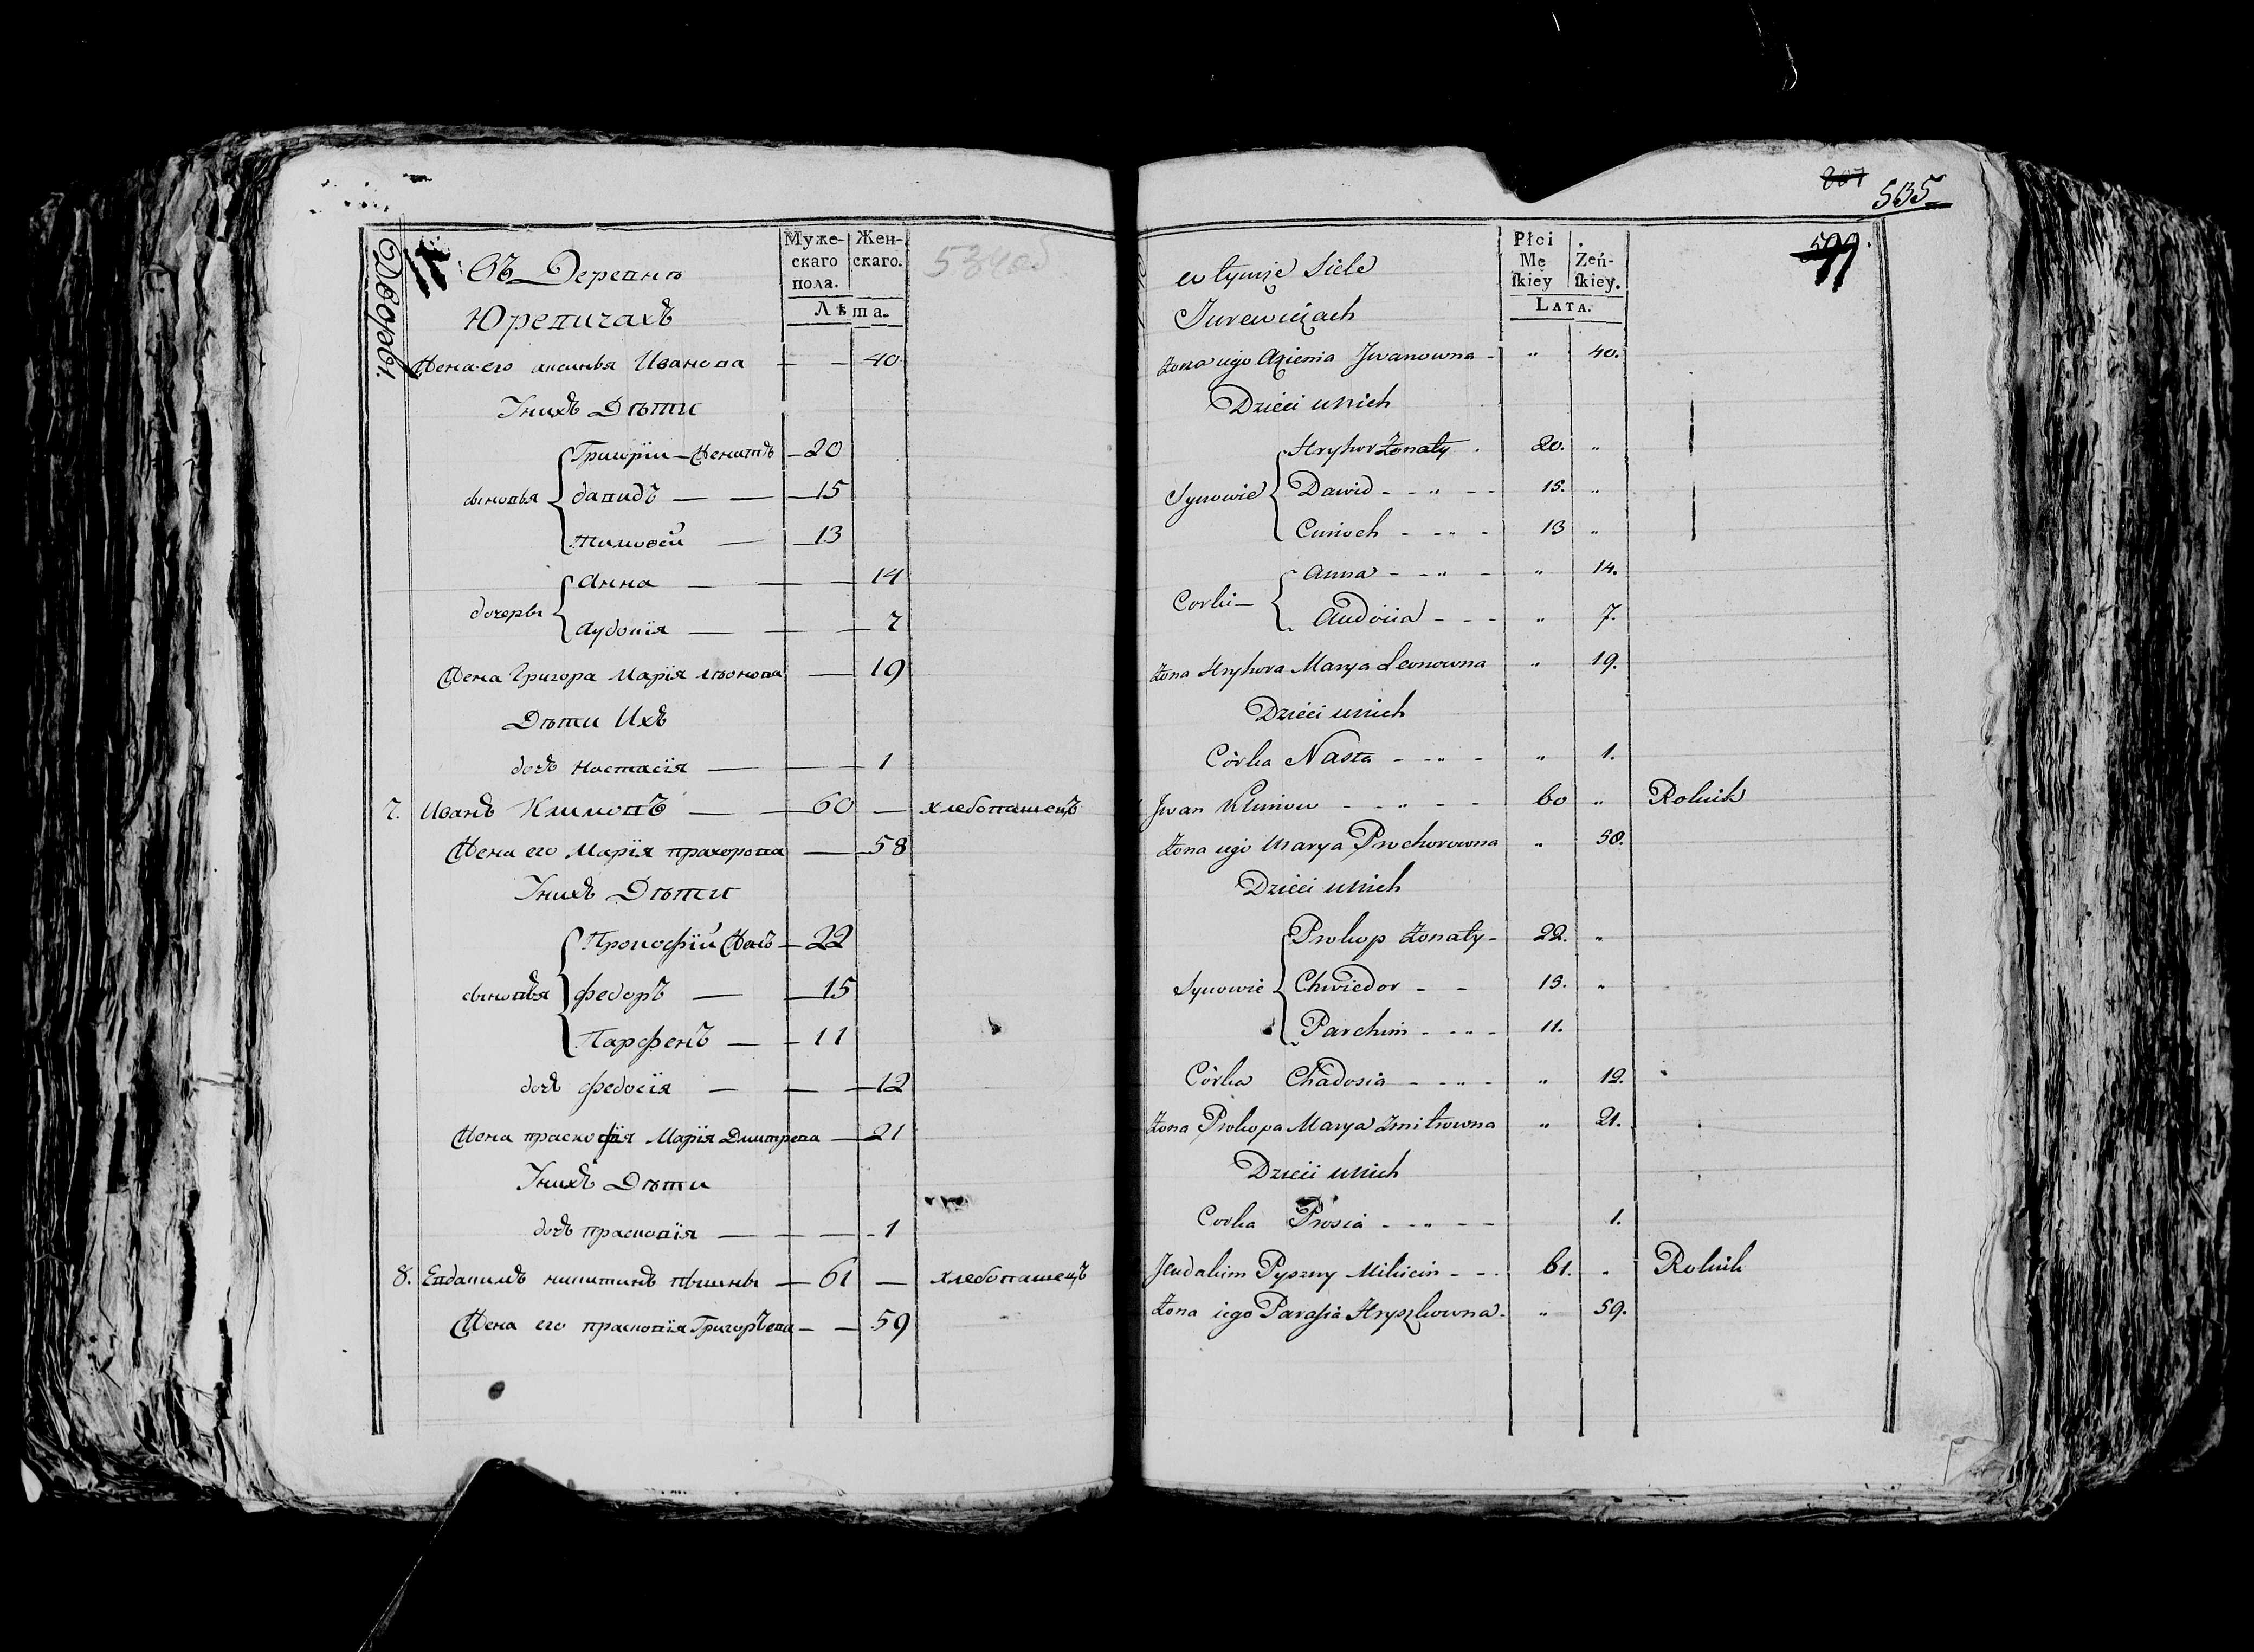 Дворовъ.
Муже-
скаго
пола.
Жен-
скаго.
Лѣта.
534об
Въ Деревнѣ
Юревичахъ
Жена его аксинья Иванова — — 40
Унихъ Дѣти
сыновья
Григорiи — Женатъ — 20
давидъ — — 15
тимофей — 13
дочеры
Анна — — — 14
Аудотiя — — — 7
Жена Григора Марiя лѣонова — 19
Дѣти Ихъ
дочь настасiя — — 1
7. Иванъ Климовъ — — 60 — хлебопашецъ
Жена его Марiя прахорова — 58
Унихъ Дѣти
сыновья
Прокофiй Жен: — 22
федоръ — — 15
Парфенъ — — 11
дочь федосiя — — 12
Жена прокофiя Марiя Дмитрева — 21
Унихъ Дѣти
дочь прасковiя — — — 1
8. Евдакимъ никитинъ пышны — 61 — хлебопашецъ
Жена его прасковiя Григорьева — — 59
807
535
Płci
Mę
ſkiey
Żeń-
ſkiey.
Lata.
w tymże Siele
Jurewiczach
Żona iego Axienia Jwanowna - " 40.
Dzieci unich
Synowie
Hryhor Żonaty . 20. "
Dawid - - " - - 15. "
Cimoch - - " - 13 "
Corki —
Anna - - " - " 14.
Audocia - - - " 7.
Żona Hryhora Marya Leonowna " 19.
Dzieci unich
Córka Nasta - - " - " 1.
Jwan Klimow - - " - - 60 " Rolnik
Żona iego Marya Prochorowna " 58.
Dzieci unich
Synowie
Prokop Żonaty - 22. "
Chwiedor - - 15. "
Parchim - - " - 11.
Córka Chadosia - - " - " 12.
Żona Prokopa Marya Zmitrowna " 21.
Dzieci unich
Corka Prosia - - " - - 1.
Jeudakim Pyszny Mikicin - - . 61. " Rolnik
Żona iego Paraſia Hryszkowna . " 59.